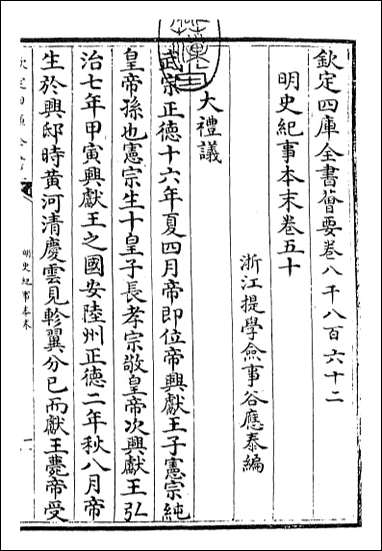 欽定四庫全書薈要卷八千八百六十二
明史紀事本末卷五十
浙江提學僉事谷應泰編
大禮議
武宗正德十六年夏四月帝即位帝興獻王子憲宗純
皇帝孫也憲宗生十皇子長孝宗敬皇帝次興獻王弘
治七年甲寅興獻王之國安陸州正德二年秋八月帝
生於興邸時黃河清慶雲見軫翼分已而獻王薨帝受
明史紀事本末